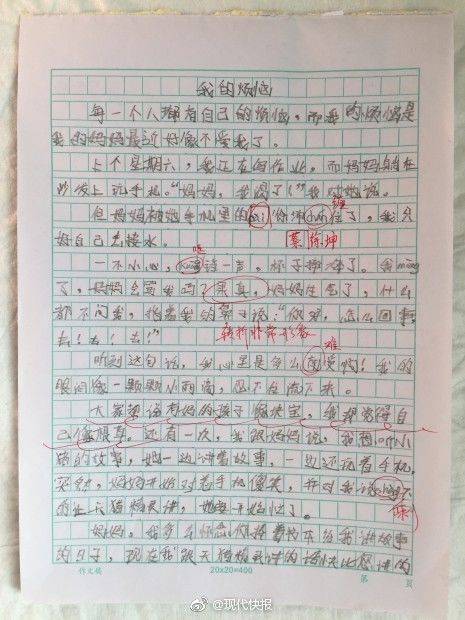 我的烦恼
每一个人都有自己的烦恼，而我的烦恼是
我的妈妈最近好像不爱我了。
上个星期六，我正在写作业，而妈妈躺在
沙发上玩手机。"妈妈，我渴了！"我对她说。
但妈妈被她手机里的
缠
住了，我只
好自己去接水。
蔡徐坤
一不小心，
一声，杯子摔碎了。我
了，妈妈会骂我吗？果真，妈妈生气了，什么
都不问我，指着我的鼻子说："你呀，怎么回事，
去！去！去！"
转折非常形象
难
听到这句话，我心里是多么
受啊！我的
眼泪像一颗颗小雨滴，忍不住流下来。
大家都说有妈的孩子像块宝，我却觉得自
己像根草。还有一次，我跟妈妈说，我想听小
猪的故事，她一边讲着故事，一边还玩着手机，
突然，妈妈开始对着手机傻笑，并对我说
不
陈
天猫精灵讲，她
开始忙了。
妈妈，我多么怀念你捧着书本给我讲故事
的日子，现在我跟天猫精灵讲的话快比您讲的
作文稿
20×20=400
第 页
@现代快报